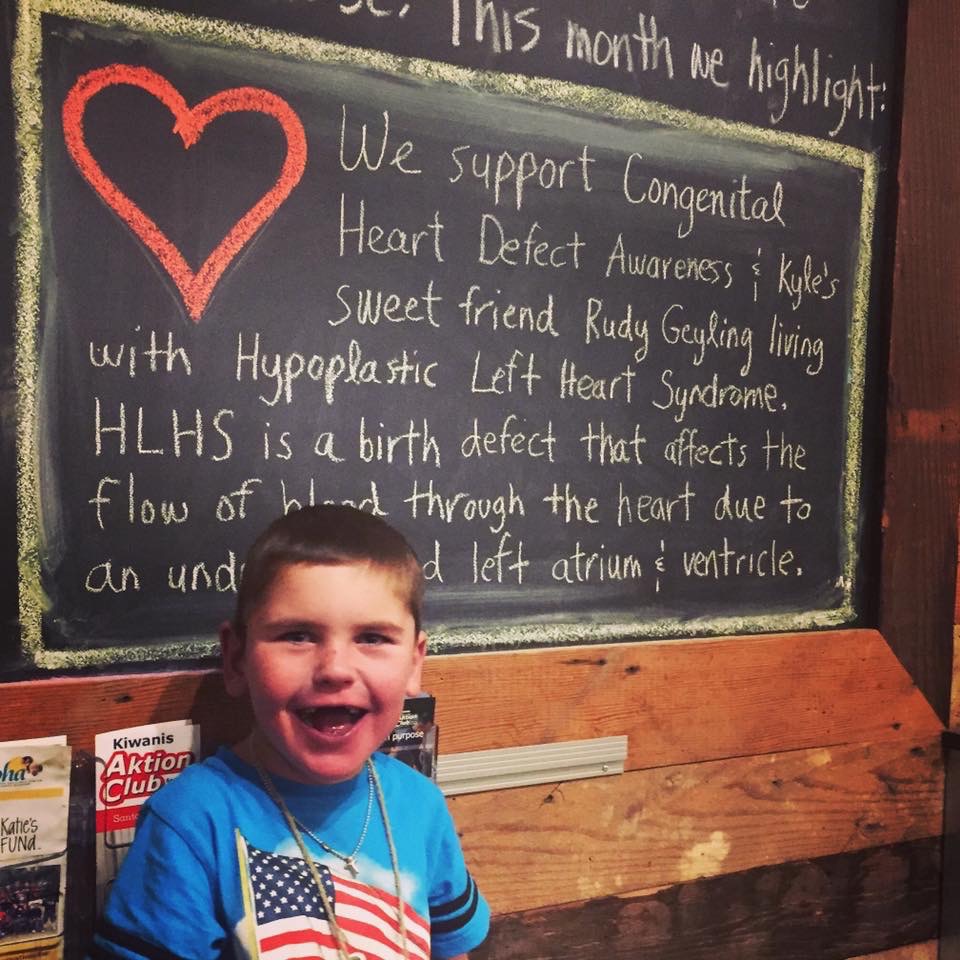 This month we highlight:
We support Congenital
Heart Defect Awareness & Kyle's
sweet friend Rudy Geyling living
with Hypoplastic Left Heart Syndrome.
HLHS is a birth defect that affects the
flow of blood through the heart due to
an left atrium & ventricle.
Kiwanis
Aktion
Club
Katie's
FUND
Aktion
Club
purpose